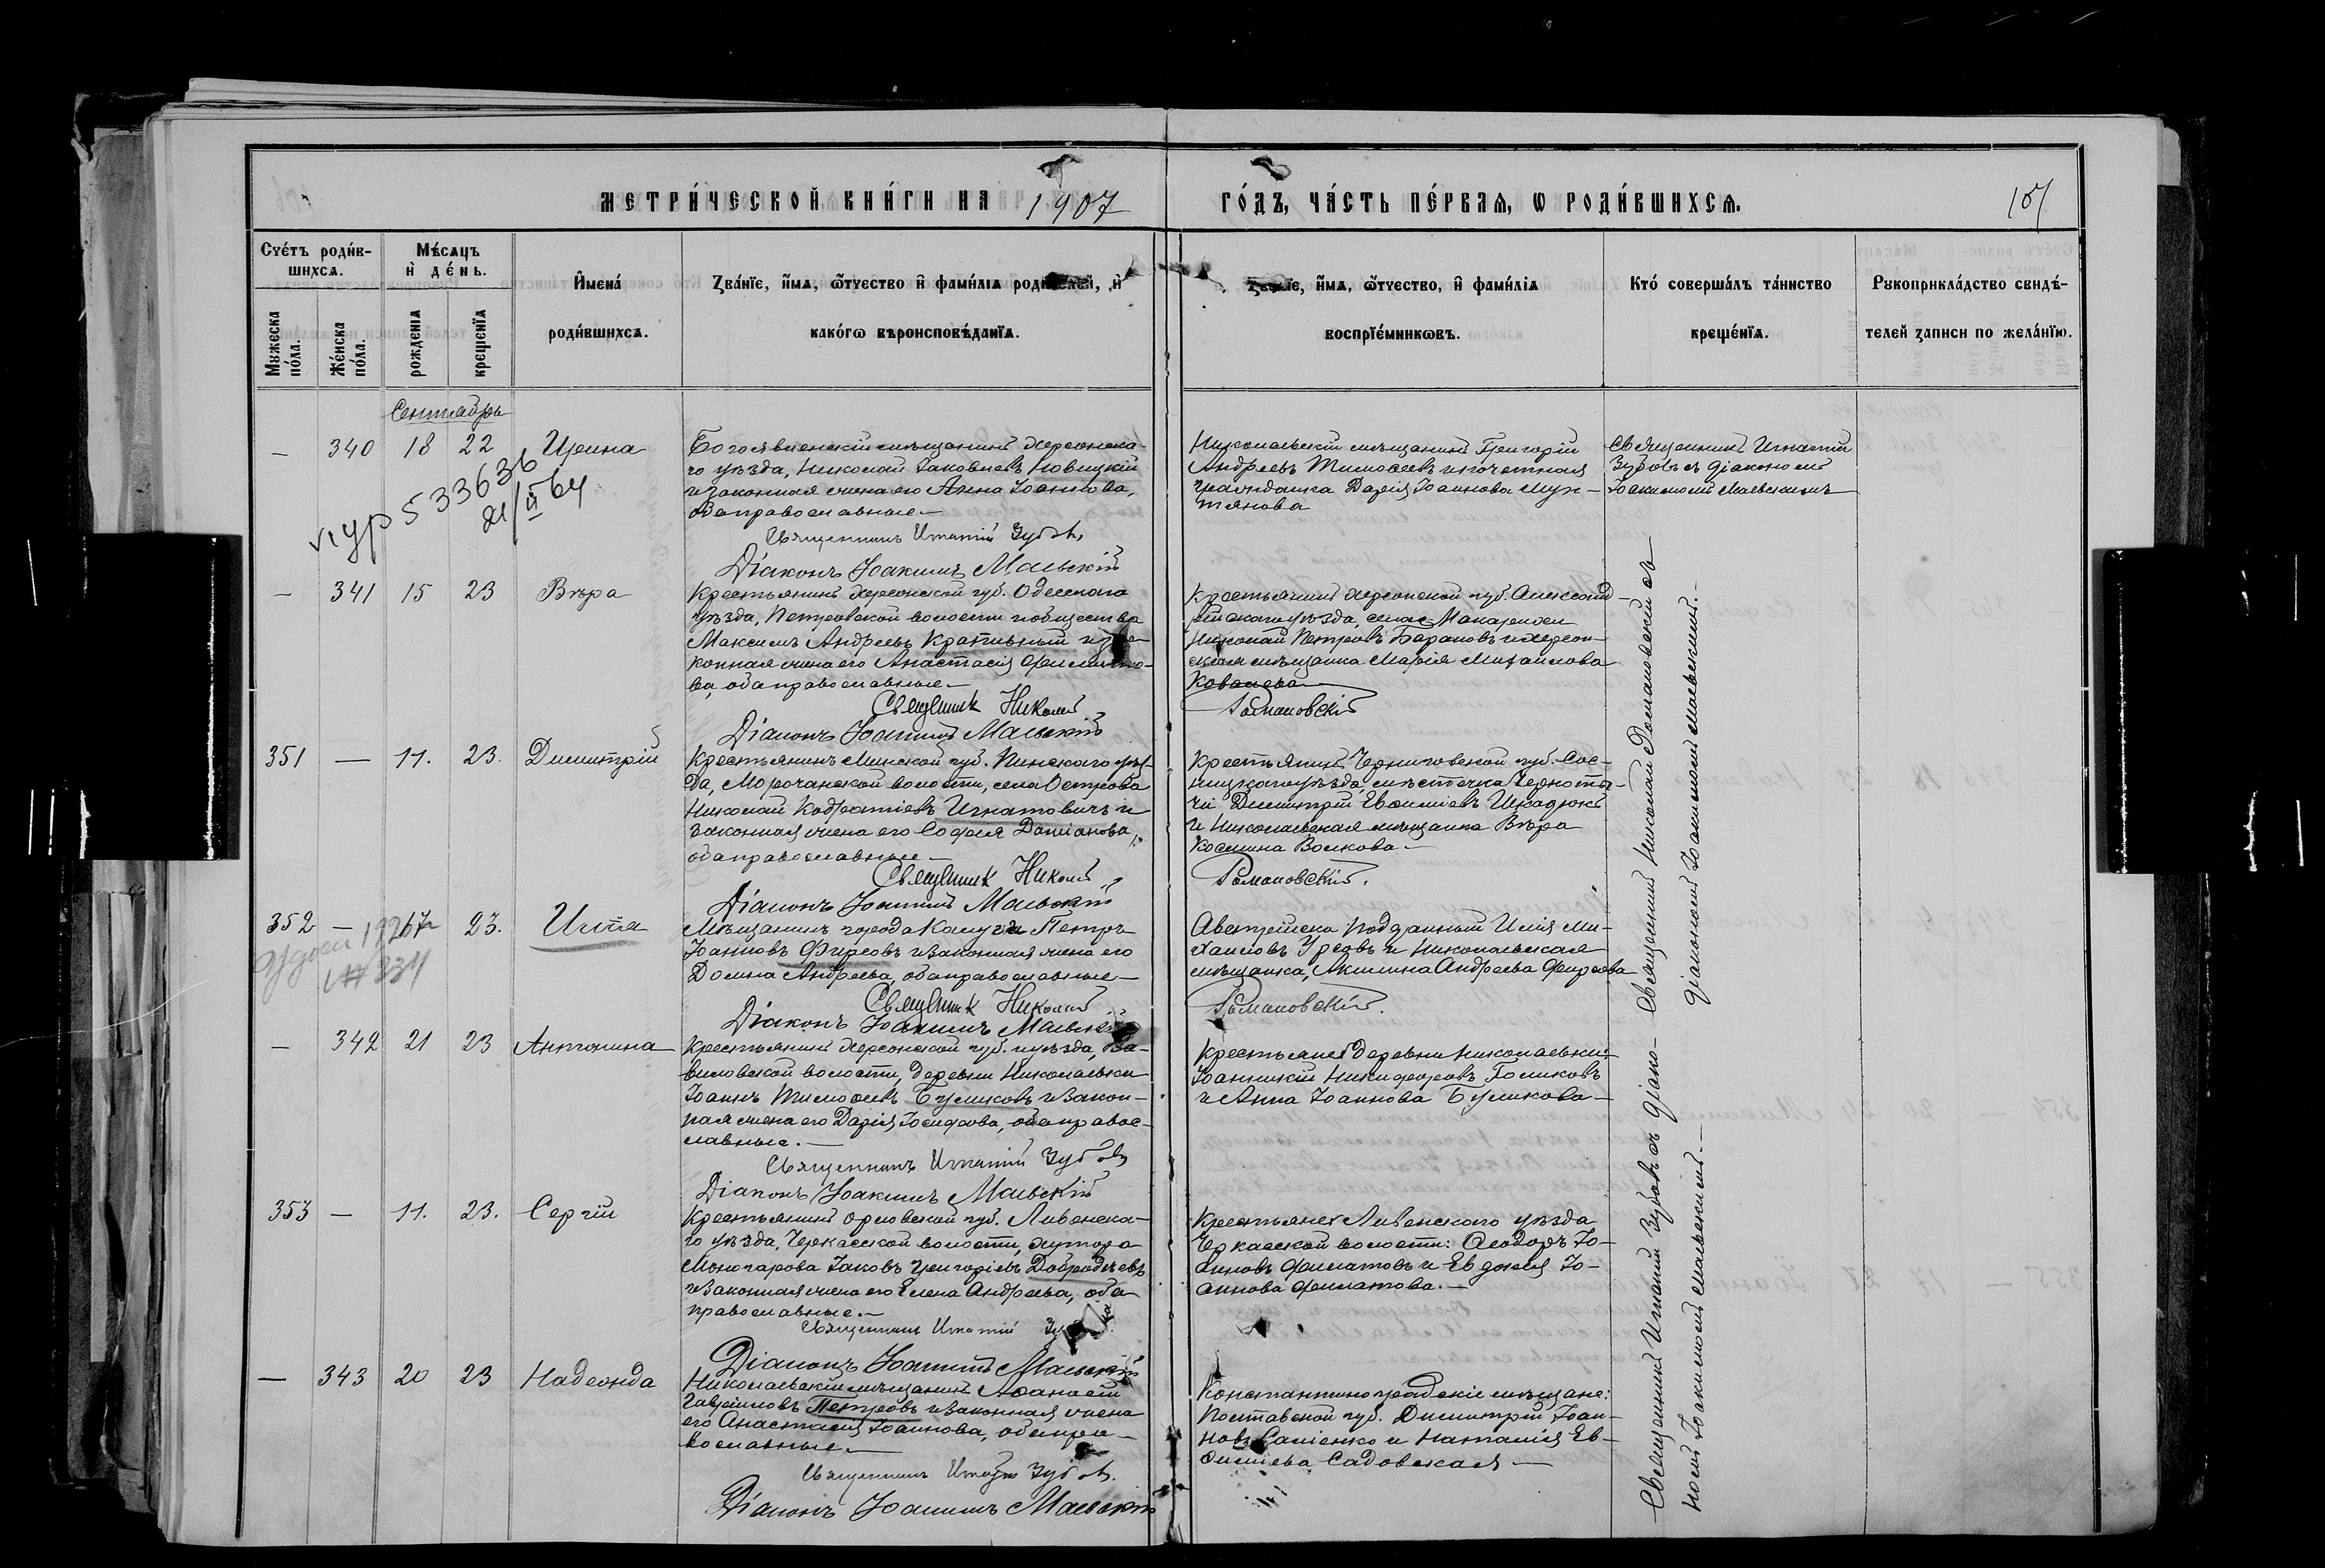 МЕТРИ́ЧЕСКОЙ КНИ́ГИ НА 1907 ГО́ДЪ, ЧА́СТЬ ПЕ́РВАѦ, Ѡ РОДИ́ВШИХСѦ.
Сче́тъ роди́в-
шихсѧ.
Мꙋжеска
по́ла.
Же́нска
по́ла.
Мѣ́сѧцъ
и҆ де́нь.
рожденїѧ
крещенїѧ
И҆мена̀
роди́вшихсѧ.
Ѕва́нїе, и҆́мѧ, ѻ҆́тчество и҆ фамѝлїѧ родителей, и҆
како́гѡ вѣроисповѣ́данїѧ.
и҆́мѧ, ѻ҆́тчество, и҆ фамѝлїѧ
воспрїе́мниковъ.
Кто́ соверша́лъ та́инство
креще́нїѧ.
Рꙋкоприкла́дство свидѣ́-
телей записи по жела́нїю.
Сентябрь
— 340 18 22 Ирина
Богоявленскій мѣщанинъ Херсонска-
го уѣзда, Николай Іаковлевъ Новицкій
и законная жена его Анна Іоаннова,
оба православные.—
Священникъ Игнатій Зубовъ
Діаконъ Іоакимъ Маевскій
Николаевскій мѣщанинъ Григорій
Андреевъ Тимоѳеевъ и почетная
гражданка Дарія Іоаннова Мун-
тянова
Священникъ Игнатій
Зубовъ съ діакономъ
Іоакимомъ Маевскимъ
533636
— 341 15 23 Вѣра
Крестьянинъ Херсонской губ. Одесскаго
уѣзда, Петровской волости и общества
Максимъ Андреевъ Крапивный и за-
конная жена его Анастасія Филиппо-
ва, оба православные.—
Священникъ Николай Романовскій
Діаконъ Іоакимъ Маевскій
Крестьянинъ Херсонской губ. Александ-
рійскаго уѣзда, села
Николай Петровъ Барановъ и херсон-
ская мѣщанка Марія Михаилова
Ковалева
351 — 11. 23. Димитрій
Крестьянинъ Минской губ. Пинскаго уѣз-
да, Морочанской волости, села Острова
Николай Кодратіевъ Игнатовичъ и
законная жена его Софія Даміанова,
оба православные—
Священникъ Николай Романовскій.
Діаконъ Іоакимъ Маевскій
Крестьянинъ Черниговской губ. Сос-
ницкаго уѣзда, мѣстечка
Димитрій Евѳиміевъ Шкадюкъ
и Николаевская мѣщанка Вѣра
Космина Волкова.—
352 — 23. Илія
Мѣщанинъ города Калуги Петръ
Іоанновъ Фирсовъ и законная жена его
Домна Андреева, оба православные—
Священникъ Николай Романовскій.
Діаконъ Іоакимъ Маевскій
Австрійско подданный Илія Ми-
хаиловъ Урсовъ и Николаевская
мѣщанка, Акилина Андреева Фирсова
— 342 21 23 Антонина
Крестьянинъ Херсонской губ. и уѣзда, Ва-
виловской волости, деревни Николаевки
Іоаннъ Тимоѳеевъ Буликовъ и закон-
ная жена его Дарія Іосифова, оба правос-
лавные.—
Священникъ Игнатій Зубовъ
Діаконъ Іоакимъ Маевскій
Крестьяне деревни Николаевки:
Іоанникій Никифоровъ Голиковъ
и Анна Іоаннова Буликова—
353 — 11. 23. Сергій
Крестьянинъ Орловской губ. Ливенска-
го уѣзда, Черкасской волости, хутора
Моногарова Іаковъ Григоріевъ Добродѣевъ
и законная жена его Елена Андреева, оба
православные.—
Священникъ Игнатій
Діаконъ Іоакимъ Маевскій
Крестьяне Ливенскаго уѣзда
Черкасской волости: Ѳеодоръ Іо-
анновъ Филатовъ и Евдокія Іо-
аннова Филатова.—
— 343 20 23 Надежда
Николаевскій мѣщанинъ Аѳанасій
Гавриловъ Петровъ и законная жена
его Анастасія Іоаннова, оба пра-
вославные.—
Священникъ Игнатій Зубовъ.
Діаконъ Іоакимъ Маевскій
Константиноградскіе мѣщане:
Полтавской губ. Димитрій Іоан-
новъ и Наталія Ев-
ѳиміева Садовская—
Священникъ Николай Романовскій съ
діакономъ Іоакимомъ Маевскимъ.—
Священникъ Игнатій Зубовъ съ діако-
номъ Іоакимомъ Маевскимъ.—